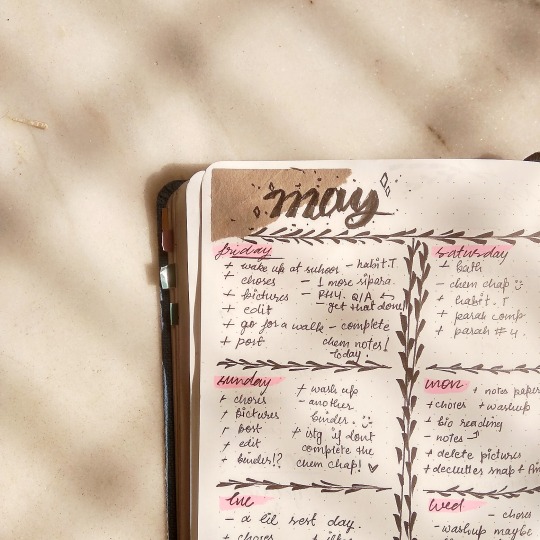 may
friday
+ wake up at suhoor - habit.T
+ chores - 1 more sipara.
+ pictures - PHY. Q/A
+ edit - get that done!
+ go for a walk - complete
+ post chem notes!
today.
saturday
+ bath
- chem chap
+ habit. T
+ parah comp
+ parah #4
sunday
+ chores
+ pictures
+ post
+ edit
+ binder!?
+ wash up
- another
binder.
+ istg if dont
complete the
chem chap!
mon + notes paper
+ chores + washup
+ bio reading
- notes
+ delete pictures
+ declutter snap +
tue
- a lil rest day.
+ chores
wed
- chores
- washup maybe